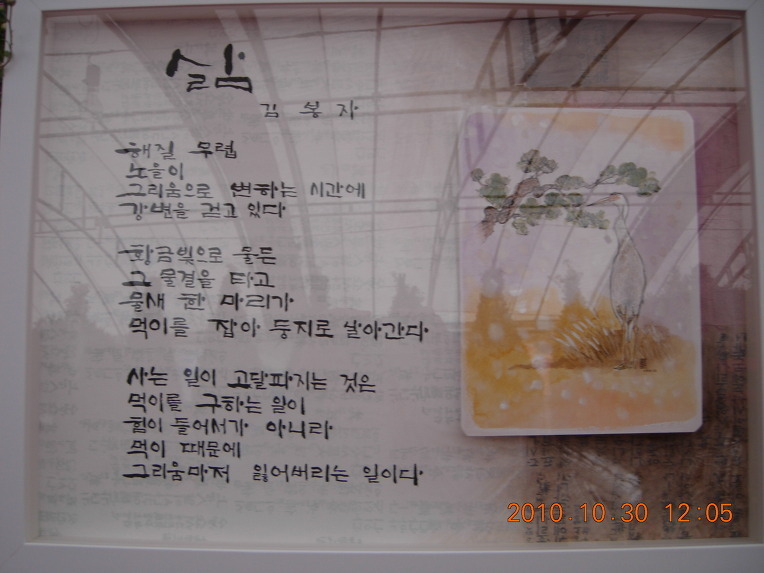 삶
김 봉 자
해질 무렵
노을이
그리움으로 변하는 시간에
강변을 걷고 있다
황금빛으로 물든
그 물결을 타고
물새 한 마리가
먹이를 잡아 둥지로 날아간다
사는 일이 고달파지는 것은
먹이를 구하는 일이
힘이 들어서가 아니라
먹이 때문에
그리움마저 잃어버리는 일이다
2010.10.30 12:05